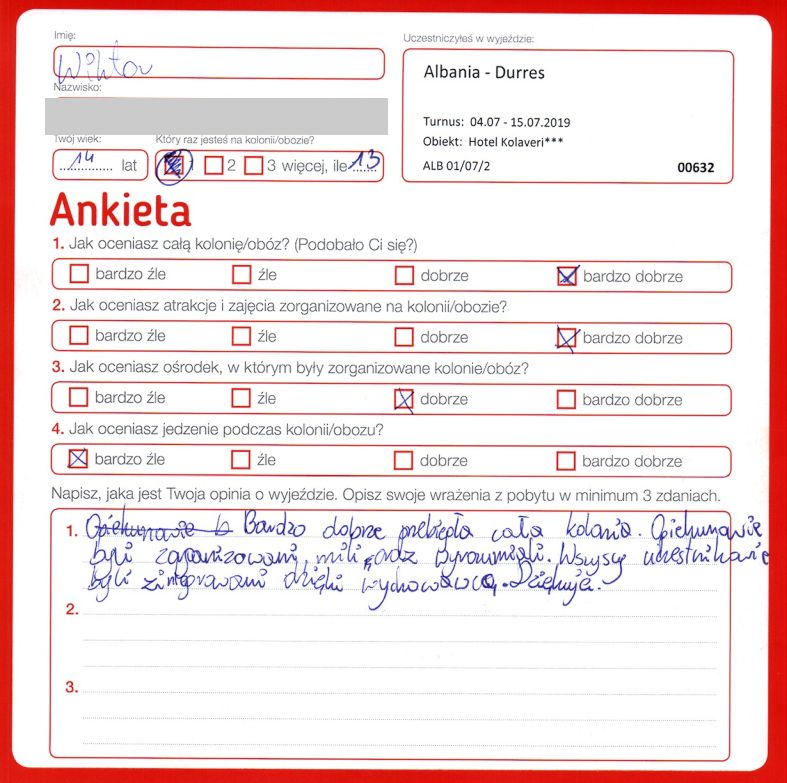 Imię:
Wiktor
Nazwisko:
Uczestniczyłeś w wyjeździe:
Albania - Durres
Turnus: 04.07 - 15.07.2019
Obiekt: Hotel Kolaveri***
ALB 01/07/2
00632
Twój wiek:
14 lat
Który raz jesteś na kolonii/obozie?
1 2 3 więcej, ile 13
Ankieta
1. Jak oceniasz całą kolonię/obóz? (Podobało Ci się?)
bardzo źle źle dobrze bardzo dobrze
2. Jak oceniasz atrakcje i zajęcia zorganizowane na kolonii/obozie?
bardzo źle źle dobrze bardzo dobrze
3. Jak oceniasz ośrodek, w którym były zorganizowane kolonie/obóz?
bardzo źle źle dobrze bardzo dobrze
4. Jak oceniasz jedzenie podczas kolonii/obozu?
bardzo źle źle dobrze bardzo dobrze
Napisz, jaka jest Twoja opinia o wyjeździe. Opisz swoje wrażenia z pobytu w minimum 3 zdaniach.
1. Opiekunowie b Bardzo dobrze przebiegła cała kolonia. Opiekunowie
byli zorganizowani, mili, oraz wyrozumiali. Wszyscy uczestnikowie
byli zintegrowani dzięki wychowawcą. Dziękuję.
2.
3.